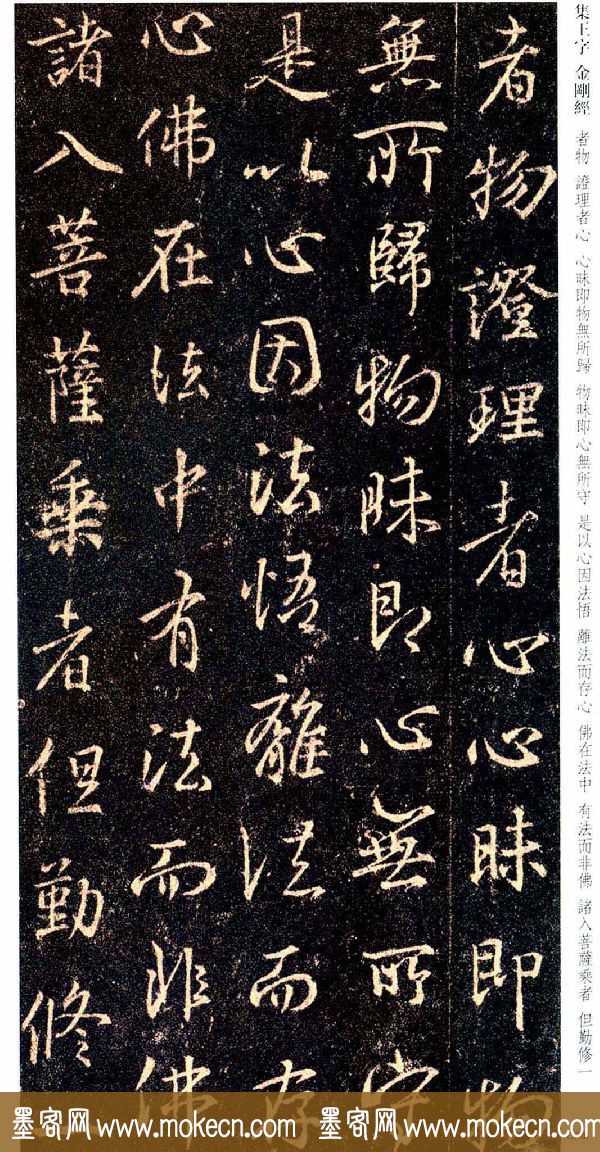 集王字 金剛經 者物 證理者心 心昧即物無所歸 物昧即心無所守 是以心因法悟 離法而存心 佛在法中 有法而非佛 諸入菩薩乘者 但勤修一
者物證理者心心昧即物
無所歸物昧即心無所守
是以心因法悟離法而存
心佛在法中有法而非佛
諸入菩薩乘者但勤修
墨客网 www.mokecn.com 墨客网 www.mokecn.com